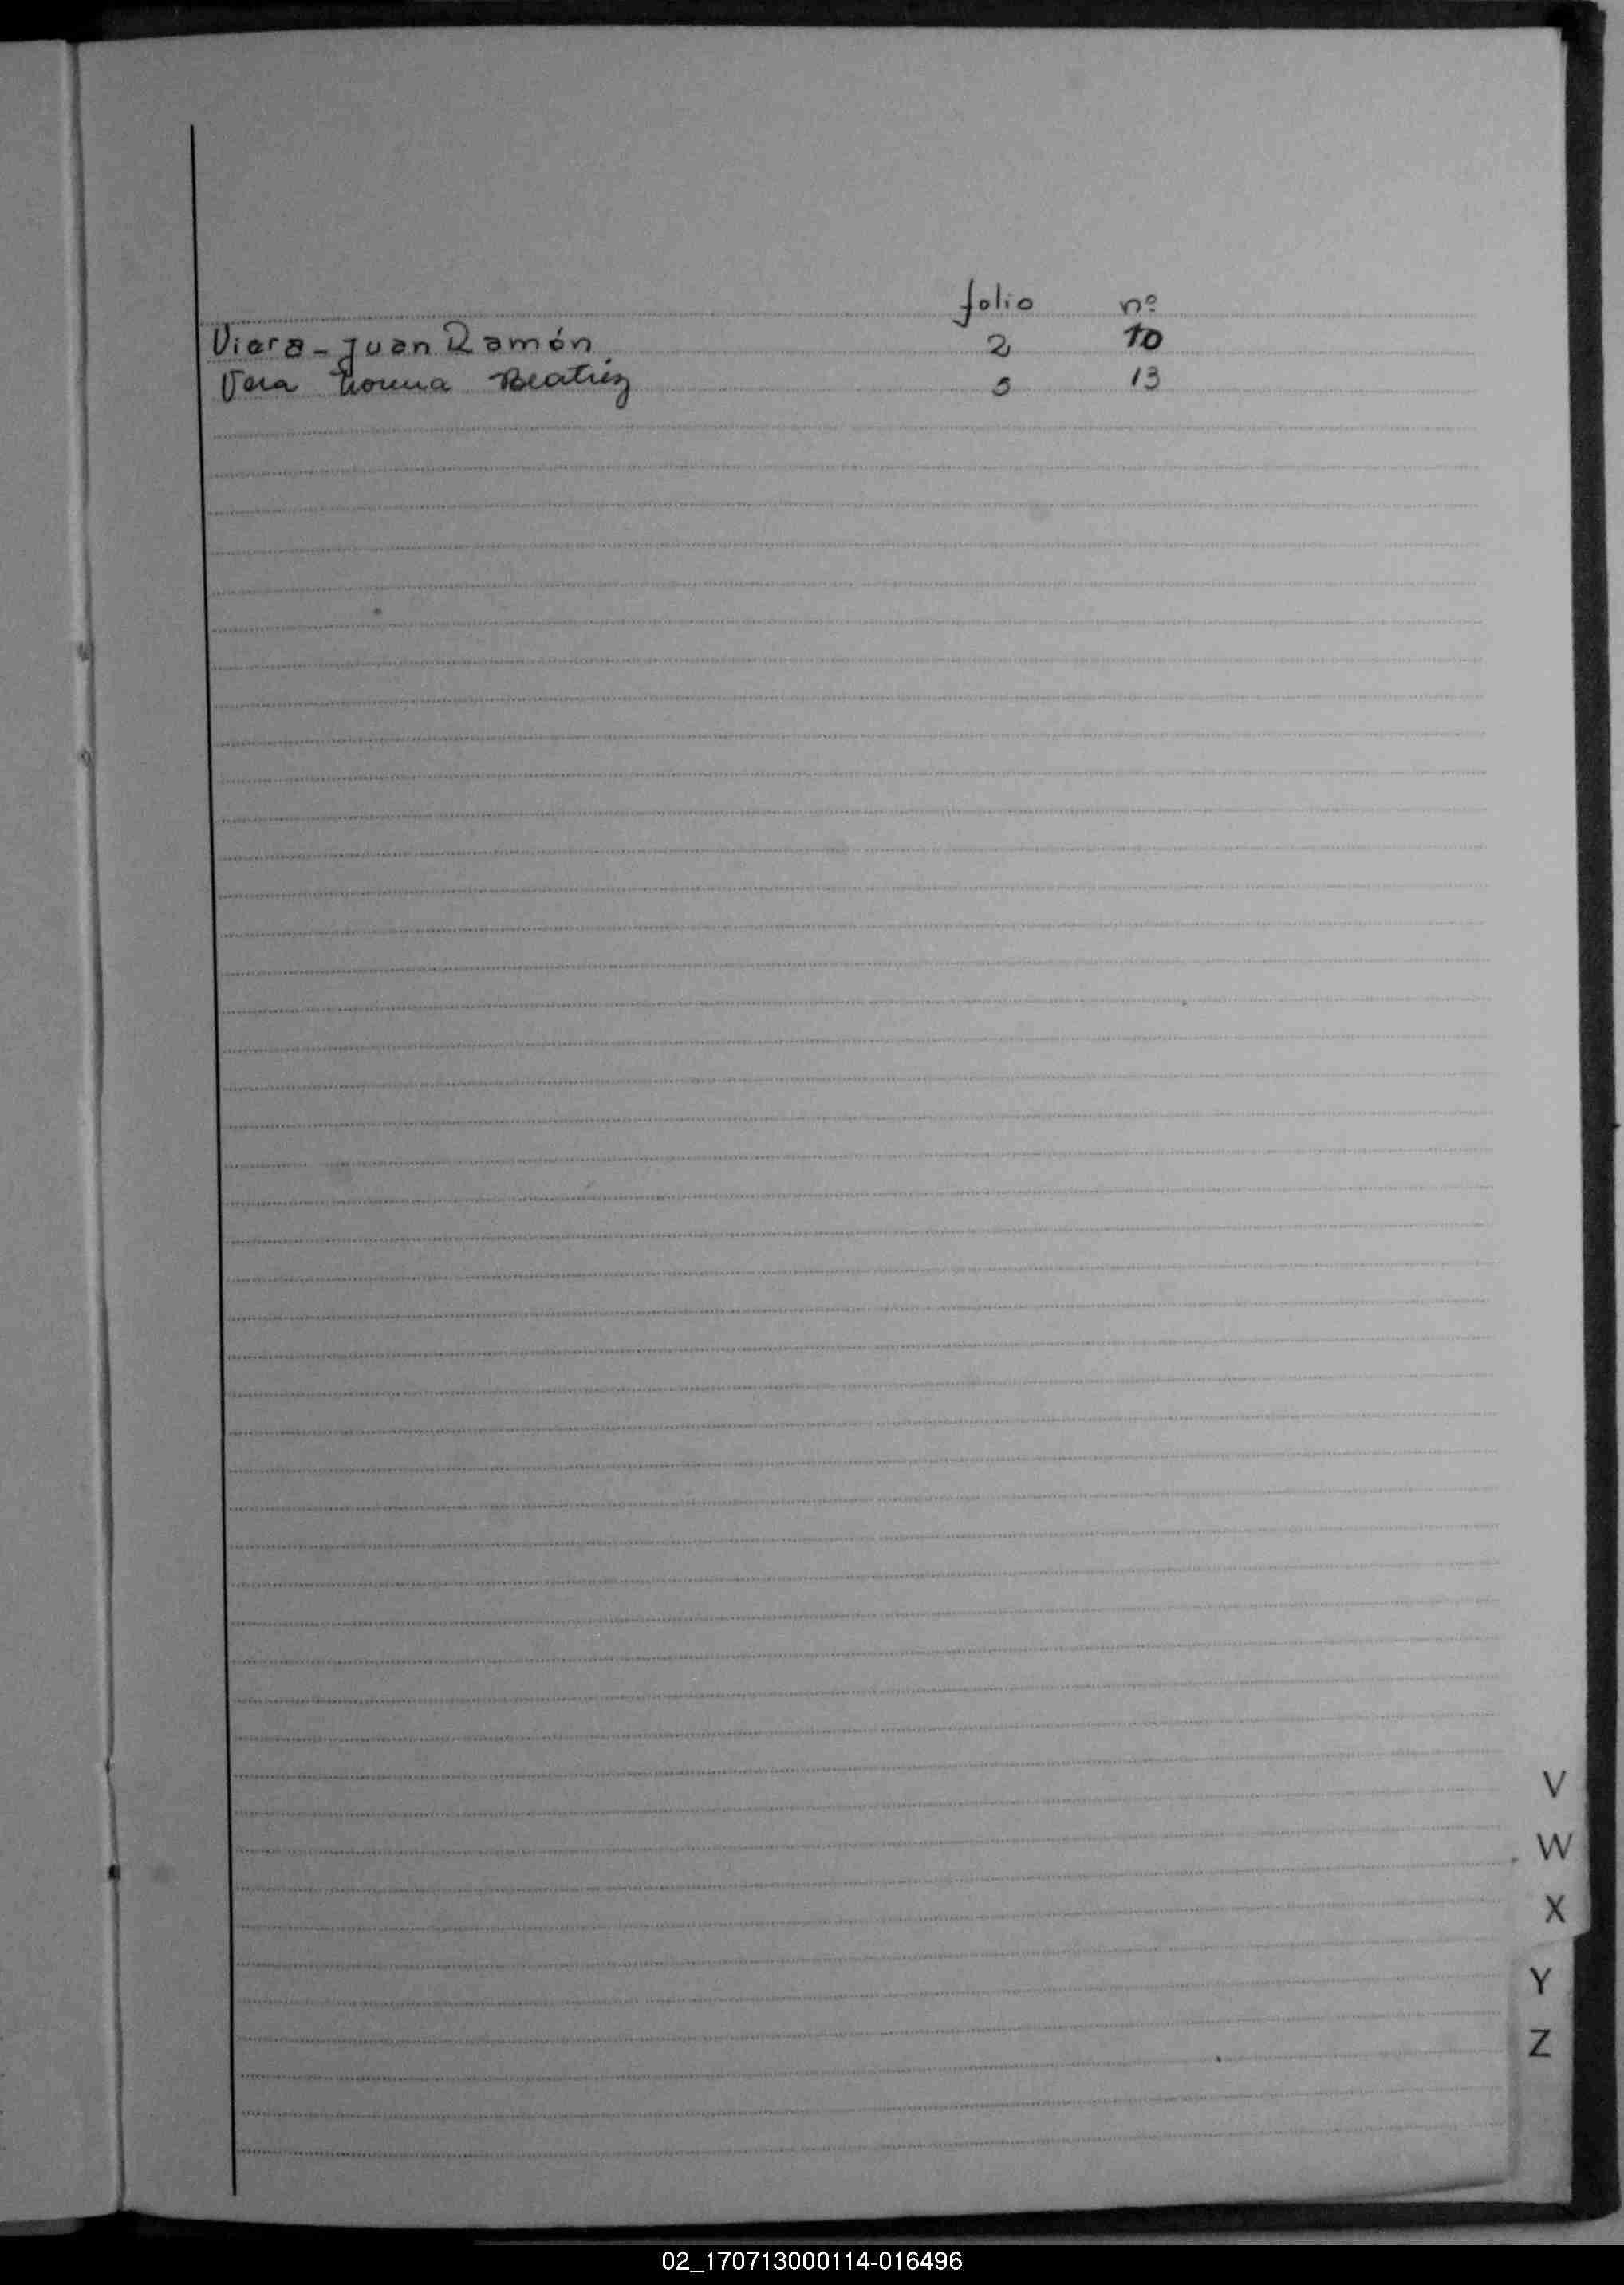 folio nº
Viera - Juan Ramón 2 10
Vera Norma Beatriz 5 13
V
W
X
Y
Z
02_170713000114-016496